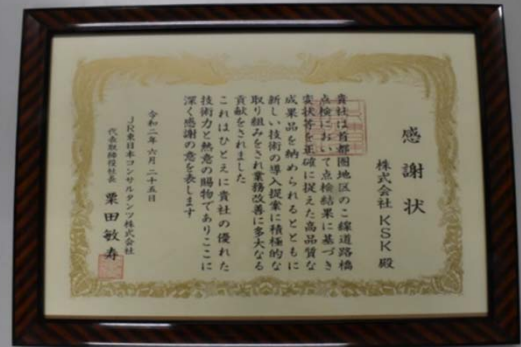 感謝状
株式会社 KSK 殿
貴社は首都圏地区のこ線道路橋
点検において点検結果に基づき
変状等を正確に捉えた高品質な
成果品を納められるとともに
新しい技術の導入提案に積極的な
取り組みをされ業務改善に多大なる
貢献をされました
これはひとえに貴社の優れた
技術力と熱意の賜物でありここに
深く感謝の意を表します
令和二年六月二十五日
JR東日本コンサルタンツ株式会社
代表取締役社長 栗田敏寿